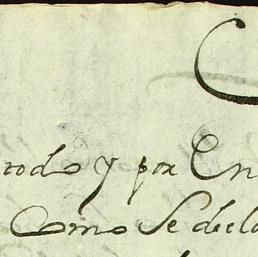 todo y por En
Como Se decla